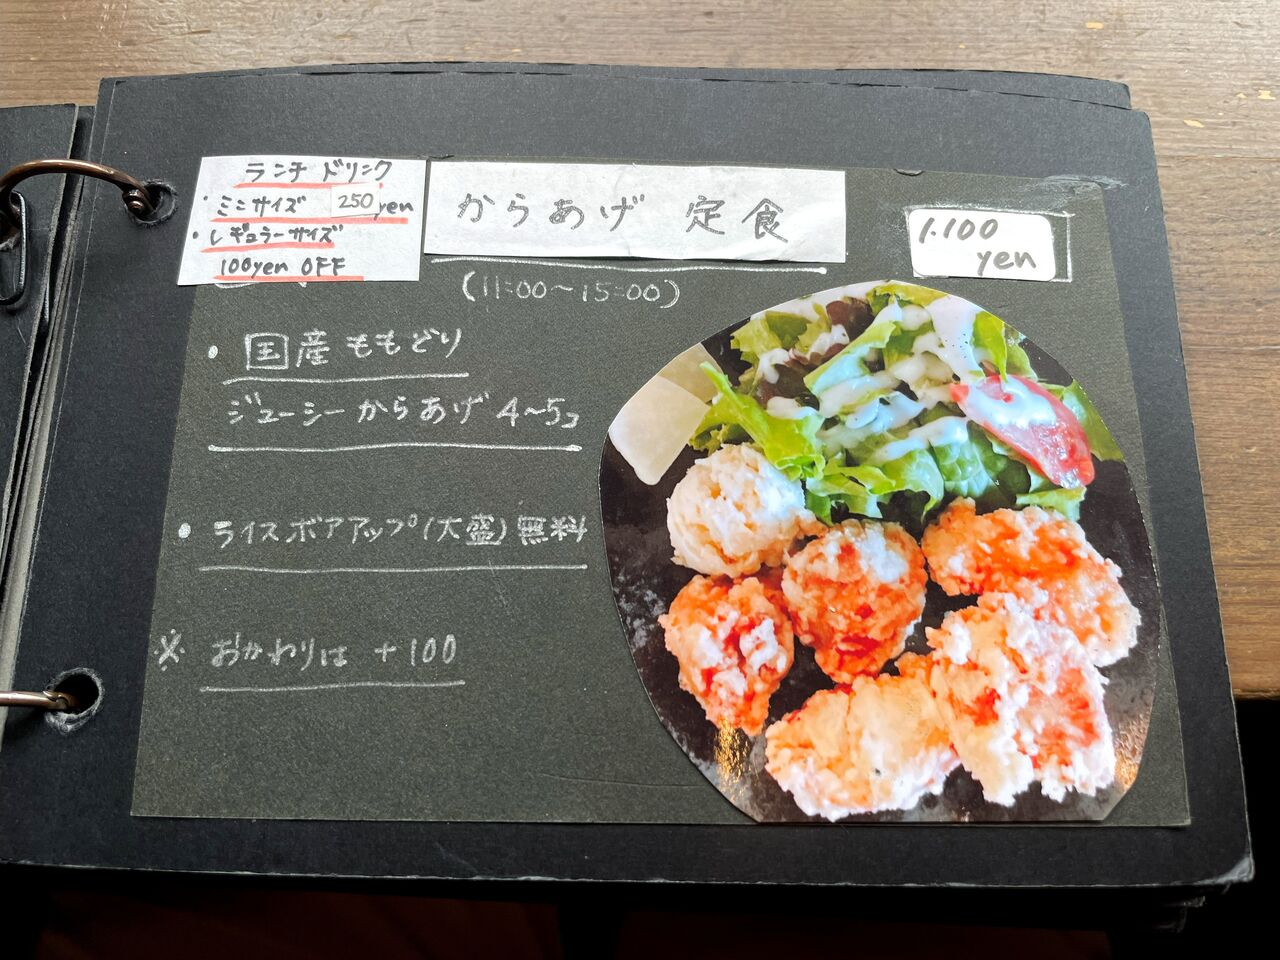 ランチ ドリンク
・ミニサイズ 250yen
・レギュラーサイズ
100yen OFF
からあげ 定食
1.100
yen
(11:00〜15:00)
・国産ももどり
ジューシーからあげ 4〜5コ
・ライスボアアップ(大盛)無料
※ おかわりは +100